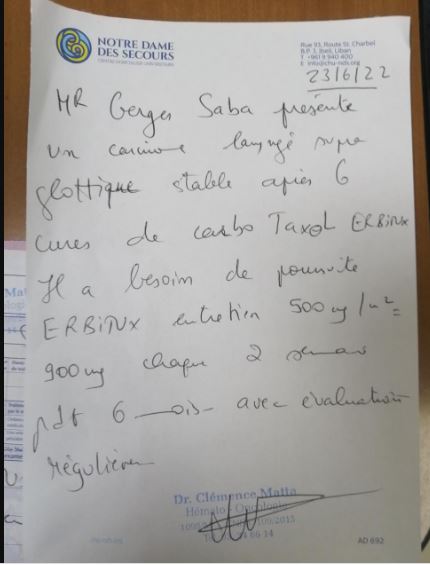 NOTRE DAME
DES SECOURS
CENTRE HOSPITALIER UNIVERSITAIRE
Rue 93, Route St. Charbel
B.P. 3, Jbeil, Liban
T. +961 9 940 400
E. info@chu-nds.org
23/6/22
MR Gerges Saba présente
un carcinome laryngé supra
glottique stable après 6
cures de carbo Taxol ERBITUX
Il a besoin de poursuite
ERBITUX entretien 500 mg/m² =
900 mg chaque 2 semaines
pdt 6 mois avec évaluation
régulière
Dr. Clémence Matta
Hémato - Oncologie
AD 692